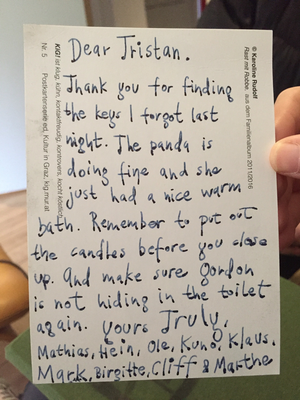 Dear Tristan.
Thank you for finding
the keys I forgot last
night. The panda is
doing fine and she
just had a nice warm
bath. Remember to put out
the candles before you close
up. And make sure Gordon
is not hiding in the toilet
again. yours Truly,
Mathias, Hein, Ole, Kuno, Klaus.
Mark, Birgitte, Cliff & Marthe
© Karoline Rudolf
Rast mit Robbe, aus dem Familienalbum 2011/2016
KiG! ist klug, kühn, kontaktfreudig, kontrovers, kocht
Postkartenserie ed. Kultur in Graz, kig.mur.at
Nr. 5